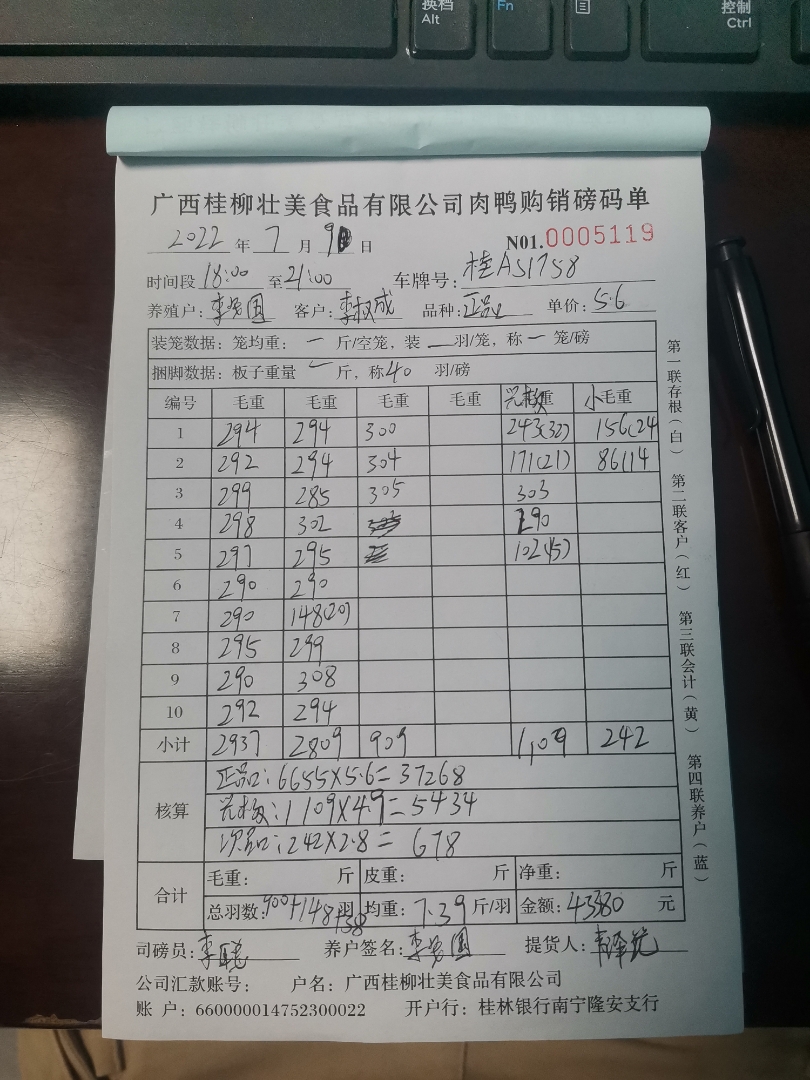 换档
Alt
Fn
控制
Ctrl
广西桂柳壮美食品有限公司肉鸭购销磅码单
2022 年 7 月 9 日 N01.0005119
时间段 18:00 至 21:00 车牌号: 桂A51758
养殖户: 李 国 客户: 李权成 品种: 正品 单价: 5.6
装笼数据: 笼均重: 一 斤/空笼, 装 一 羽/笼, 称 一 笼/磅
捆脚数据: 板子重量 一 斤, 称 40 羽/磅
编号 毛重 毛重 毛重 毛重 毛重 小毛重
1 294 294 300 243(32) 156(24
2 292 294 304 171(21) 86(14
3 299 285 305 303
4 298 302 290
5 297 295 102(15)
6 290 290
7 290 148(20)
8 295 299
9 290 308
10 292 294
小计 2937 2809 909 1109 242
正品: 6655×5.6=37268
核算 1109×4.9=5434
次品: 242×2.8= 678
合计 毛重: 斤 皮重: 斤 净重: 斤
总羽数: 900+148+38 羽 均重: 7.39 斤/羽 金额: 43380 元
司磅员: 李 养户签名: 李 国 提货人:
公司汇款账号: 户名: 广西桂柳壮美食品有限公司
账 户: 660000014752300022 开户行: 桂林银行南宁隆安支行
第一联存根(白)
第二联客户(红)
第三联会计(黄)
第四联养户(蓝)